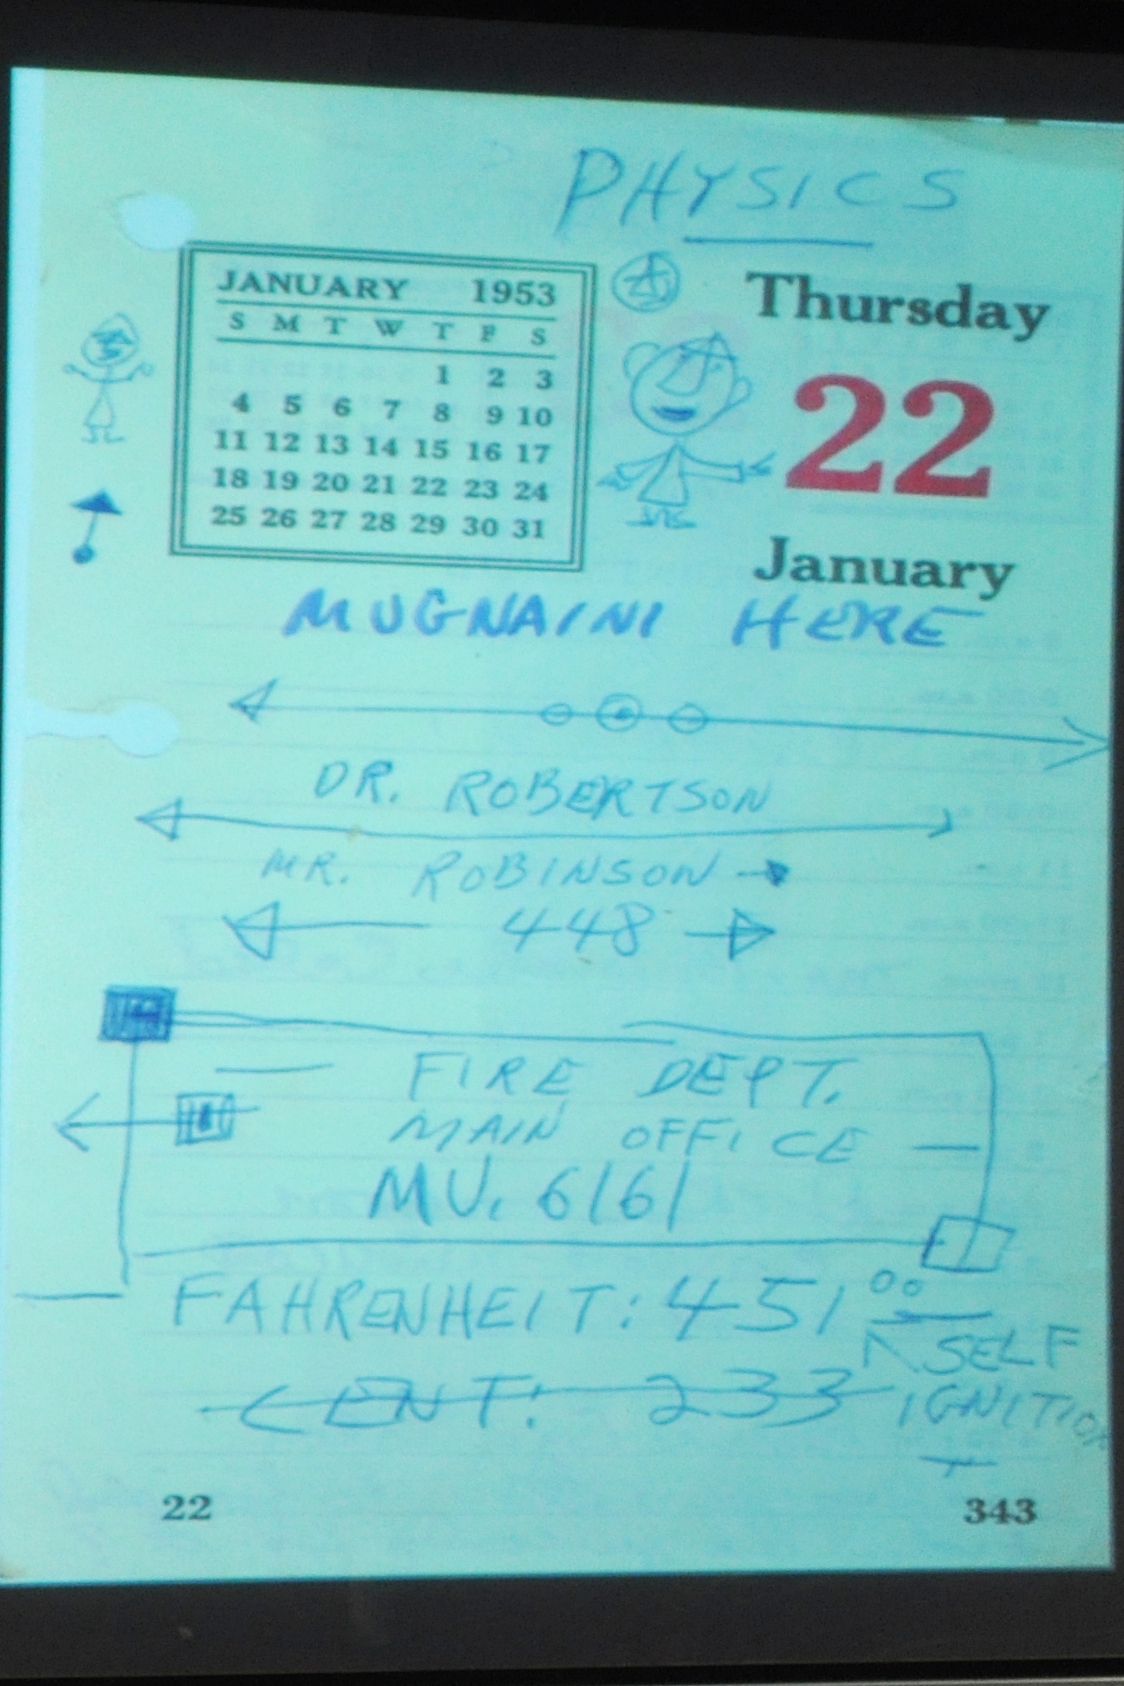 PHYSICS
JANUARY 1953
S M T W T F S
1 2 3
4 5 6 7 8 9 10
11 12 13 14 15 16 17
18 19 20 21 22 23 24
25 26 27 28 29 30 31
Thursday
22
January
MUGNAINI HERE
DR. ROBERTSON
MR. ROBINSON
448
FIRE DEPT.
MAIN OFFICE
MU. 6161
FAHRENHEIT: 451°°
SELF
IGNITION
CENT: 233
22
343